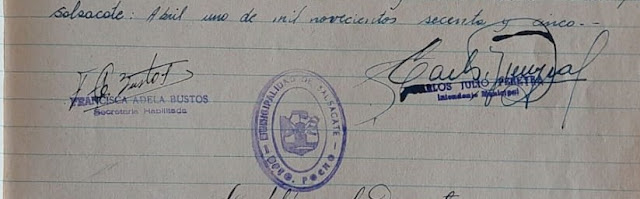 Salsacate: Abril uno de mil novecientos secenta y cinco.--
F. A. Bustos
FRANCISCA ADELA BUSTOS
Secretaria Habilitada
MUNICIPALIDAD DE SALSACATE
DPTO. POCHO
CARLOS JULIO
Intendente Municipal